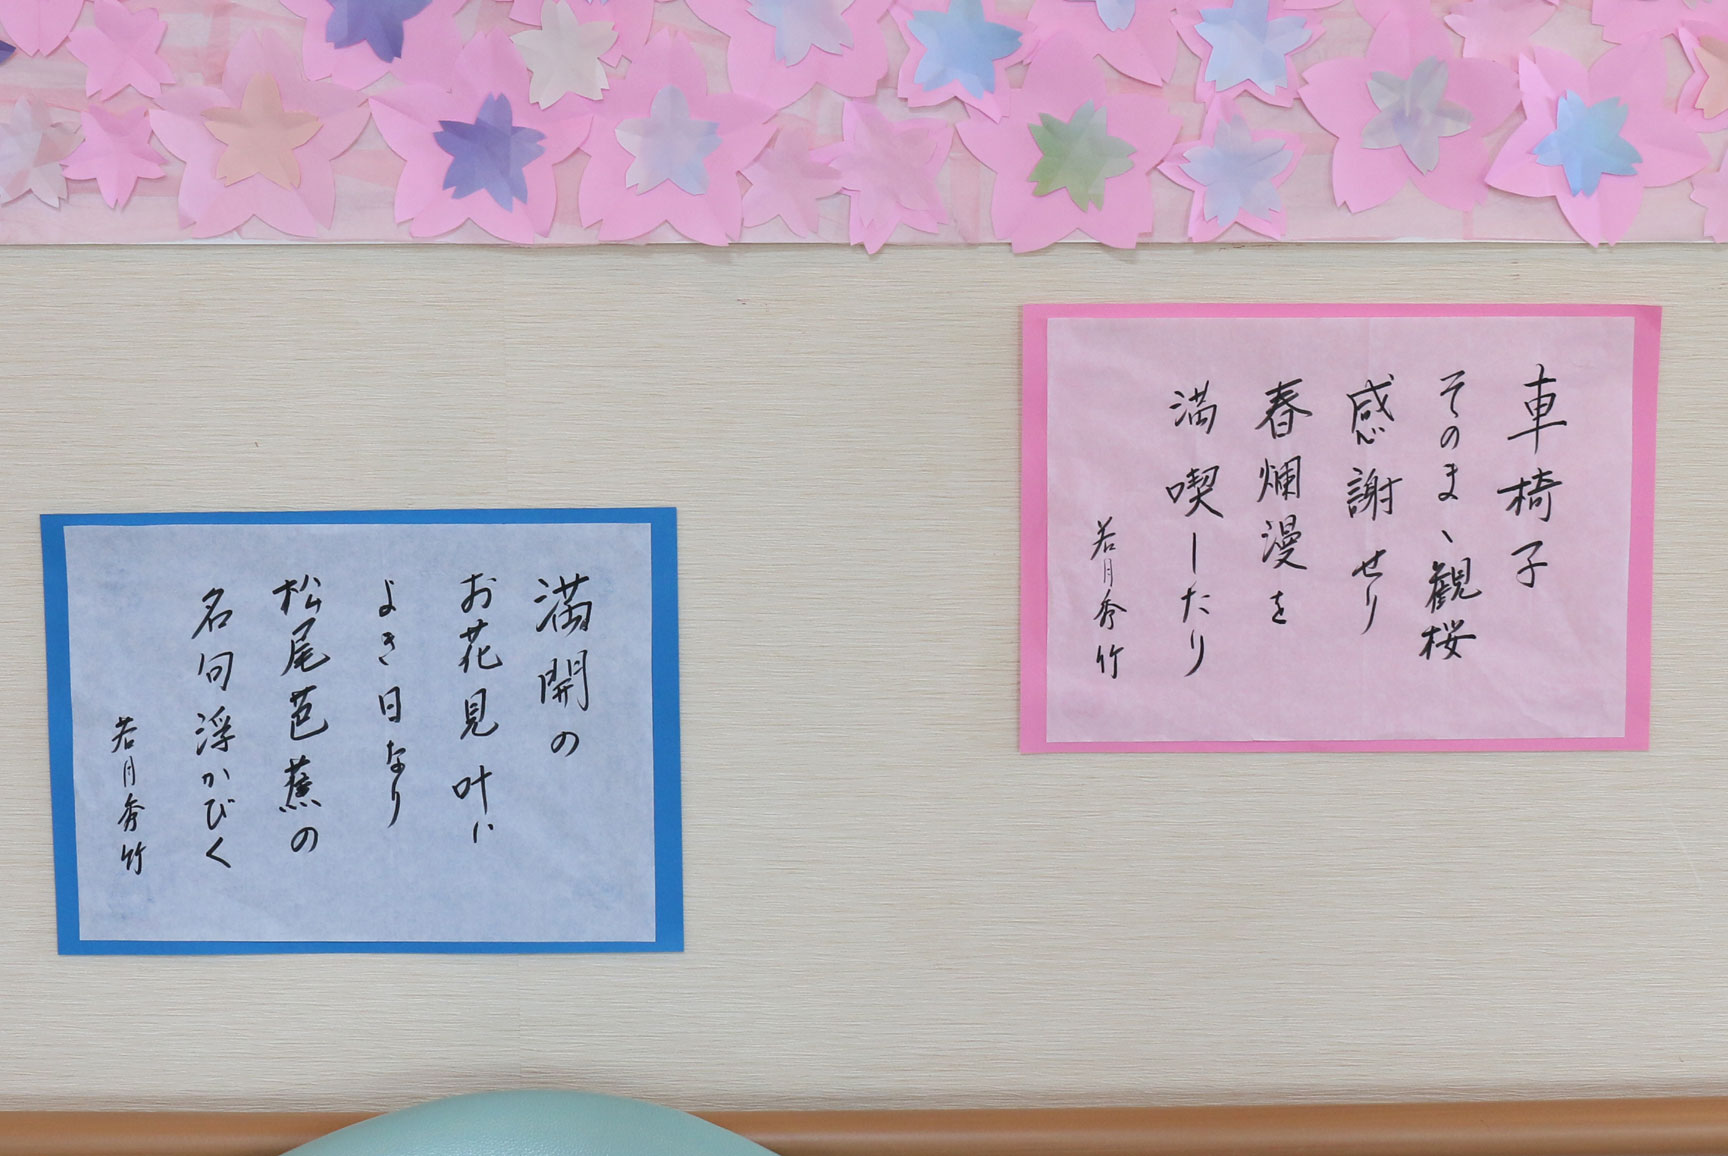 車椅子
そのまゝ観桜
感謝せり
春爛漫を
満喫したり
若月秀竹
満開の
お花見叶い
よき日なり
松尾芭蕉の
名句浮かびく
若月秀竹